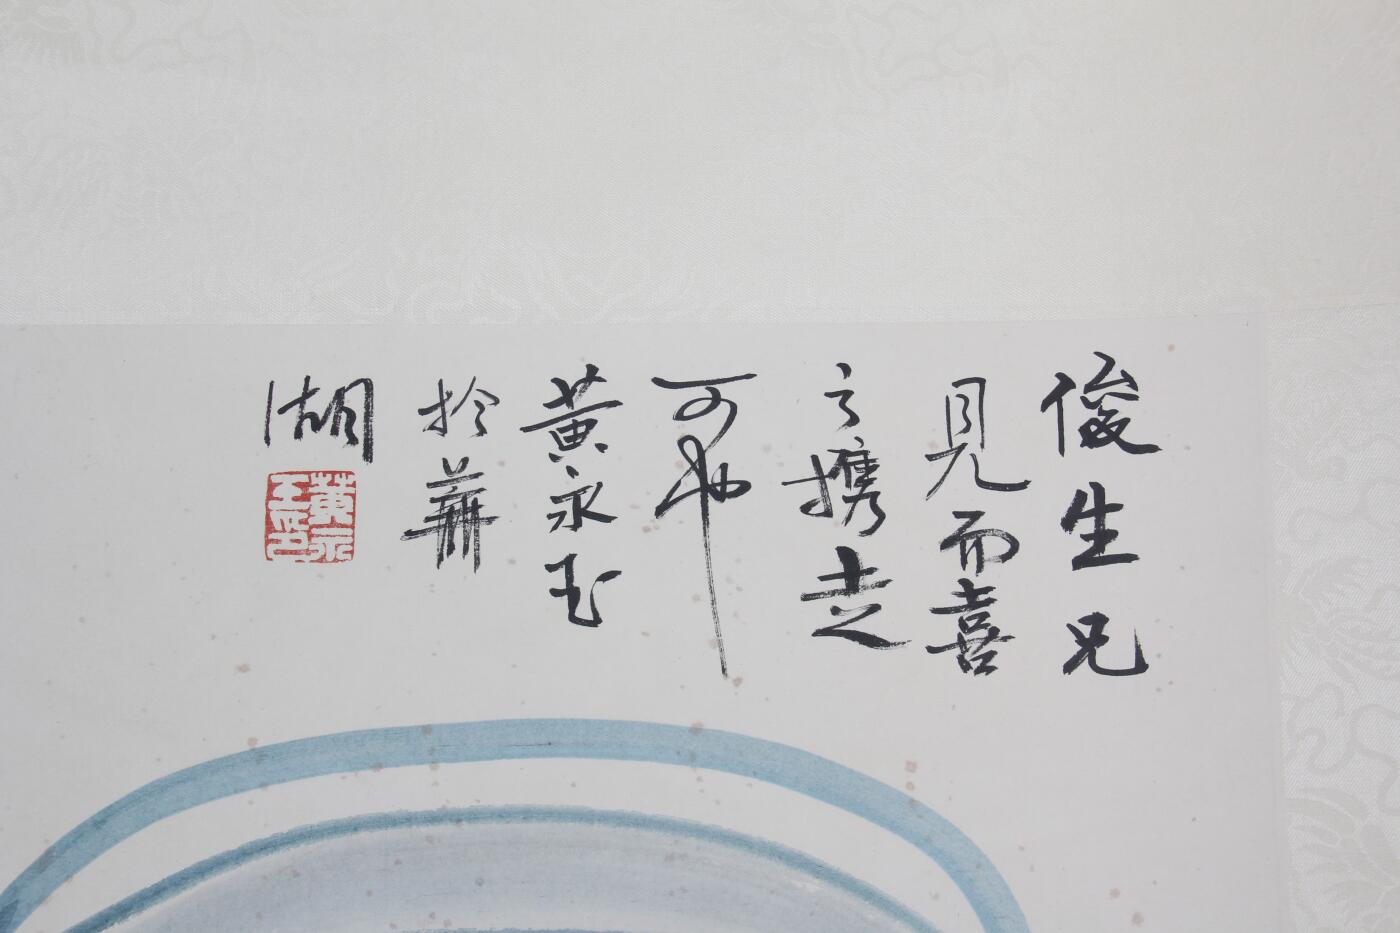 俊生兄
見而喜
之携走
可也
黄永玉
於華
湖
黄永
玉印